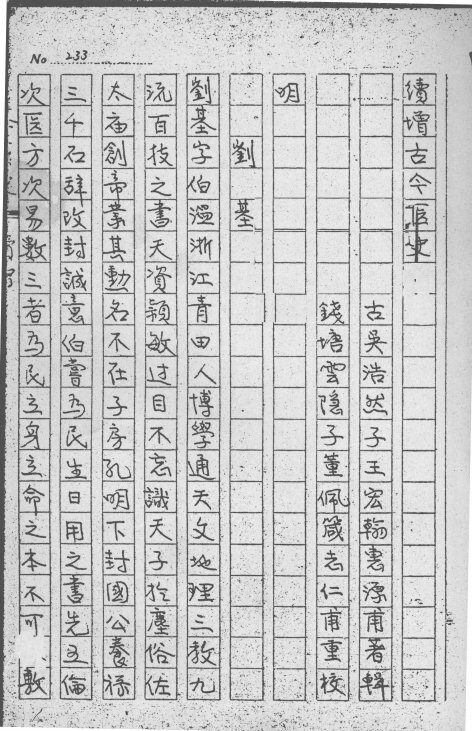 No 233
續增古今医史
古吳浩然子王宏翰惠源甫著輯
錢塘雲隐子董佩箴志仁甫重校
明
劉 基
劉基字伯溫浙江青田人博學通天文地理三教九
流百技之書天資穎敏过目不忘識天子於塵俗佐
太祖創帝業其勳名不在子房孔明下封國公養祿
三千石辞改封誠意伯嘗為民生日用之書先五倫
次医方次易數三者為民立身立命之本不可 數